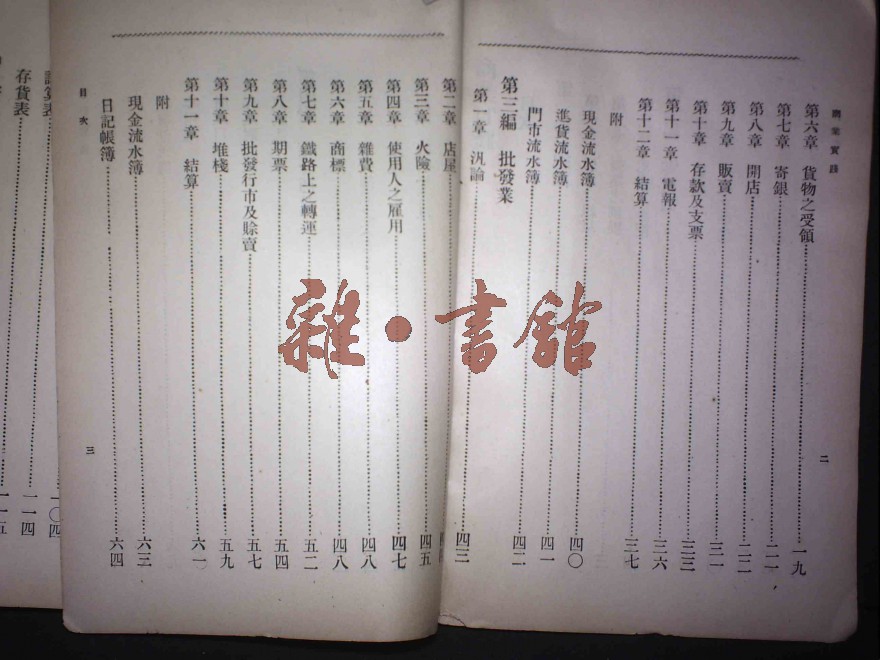 商業實錄
第六章　貨物之受領……一九
第七章　寄銀……二一
第八章　開店……二二
第九章　販賣……三一
第十章　存款及支票……三三
第十一章　電報……三六
第十二章　結算……三七
附
現金流水簿……四〇
進貨流水簿……四一
門市流水簿……四二
第三編　批發業
第一章　汎論……四三
二
第二章　店屋
第三章　火險……四五
第四章　使用人之雇用……四七
第五章　雜費……四八
第六章　商標……四八
第七章　鐵路上之轉運……五二
第八章　期票……五四
第九章　批發行市及賒賣……五七
第十章　堆棧……五九
第十一章　結算……六一
附
現金流水簿……六三
日記帳簿……六四
目次
三
計算表……一〇四
存貨表……一一四
一一五
雜·書館